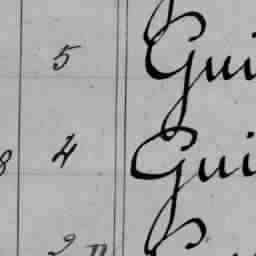 5 Gui
8 4 Gui